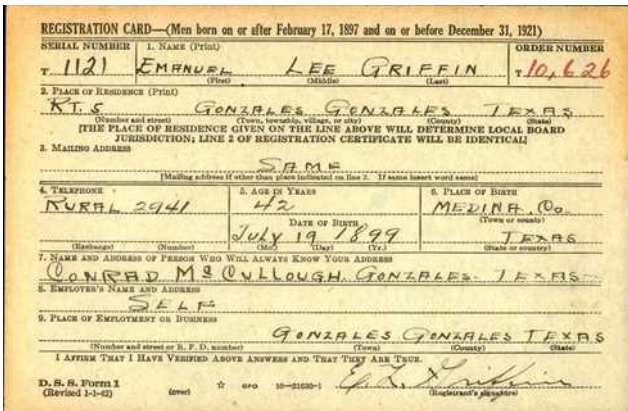 REGISTRATION CARD—(Men born on or after February 17, 1897 and on or before December 31, 1921)
SERIAL NUMBER 1. NAME (Print) ORDER NUMBER
T 1121 EMANUEL LEE GRIFFIN T 10,626
(First) (Middle) (Last)
2. PLACE OF RESIDENCE (Print)
RT. 5 GONZALES GONZALES TEXAS
(Number and street) (Town, township, village, or city) (County) (State)
[THE PLACE OF RESIDENCE GIVEN ON THE LINE ABOVE WILL DETERMINE LOCAL BOARD
JURISDICTION; LINE 2 OF REGISTRATION CERTIFICATE WILL BE IDENTICAL]
3. MAILING ADDRESS
SAME
[Mailing address if other than place indicated on line 2. If same insert word same]
4. TELEPHONE 5. AGE IN YEARS 6. PLACE OF BIRTH
RURAL 2941 42 MEDINA. CO.
DATE OF BIRTH (Town or county)
July 19 1899 TEXAS
(Exchange) (Number) (Mo.) (Day) (Yr.) (State or country)
7. NAME AND ADDRESS OF PERSON WHO WILL ALWAYS KNOW YOUR ADDRESS
CONRAD McCULLOUGH. GONZALES- TEXAS-
8. EMPLOYER'S NAME AND ADDRESS
SELF
9. PLACE OF EMPLOYMENT OR BUSINESS
GONZALES GONZALES TEXAS
(Number and street or R. F. D. number) (Town) (County) (State)
I AFFIRM THAT I HAVE VERIFIED ABOVE ANSWERS AND THAT THEY ARE TRUE.
D. S. S. Form 1 E. L. Griffin
(Revised 1-1-42) (over) ☆ GPO 16—21630-1 (Registrant's signature)